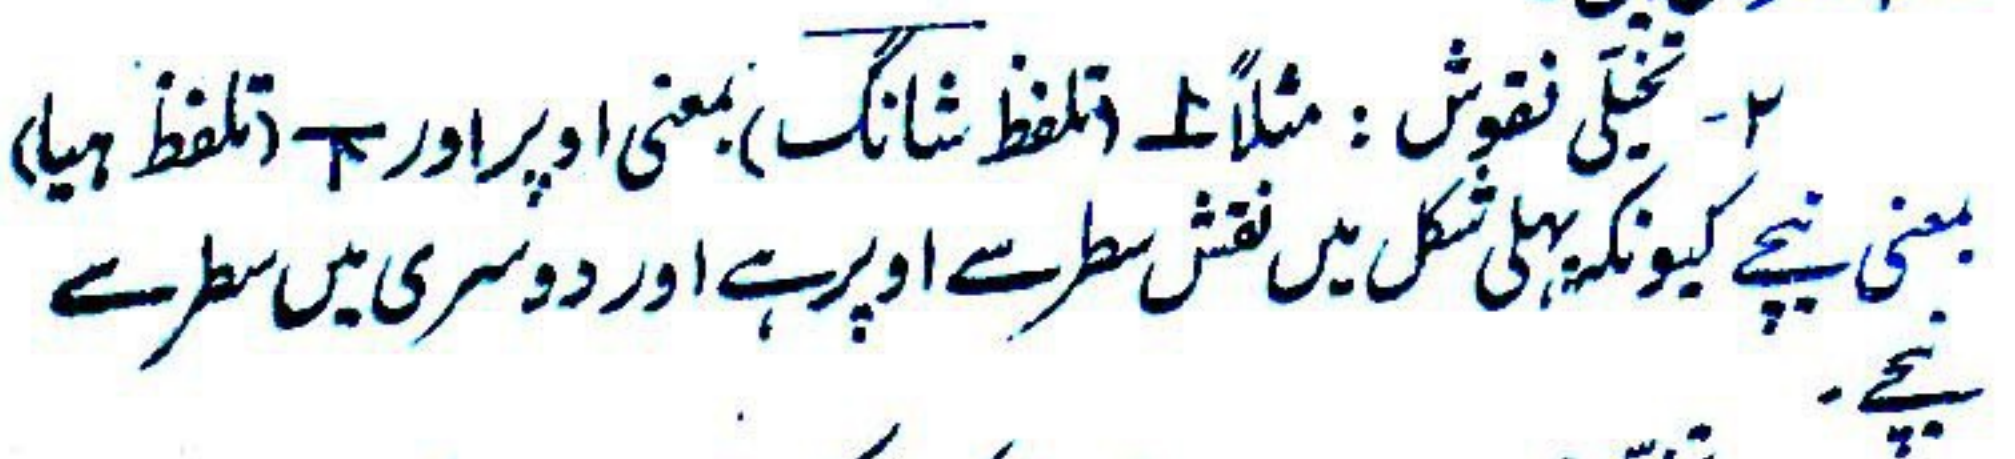 ۲- تخیّلی نقوش : مثلاً 上 (تلفظ شانگ) بمعنی اوپر اور 下 (تلفظ ہیا)
بمعنی نیچے کیونکہ پہلی شکل میں نقش سطر سے اوپر ہے اور دوسری میں سطر سے
نیچے ۔